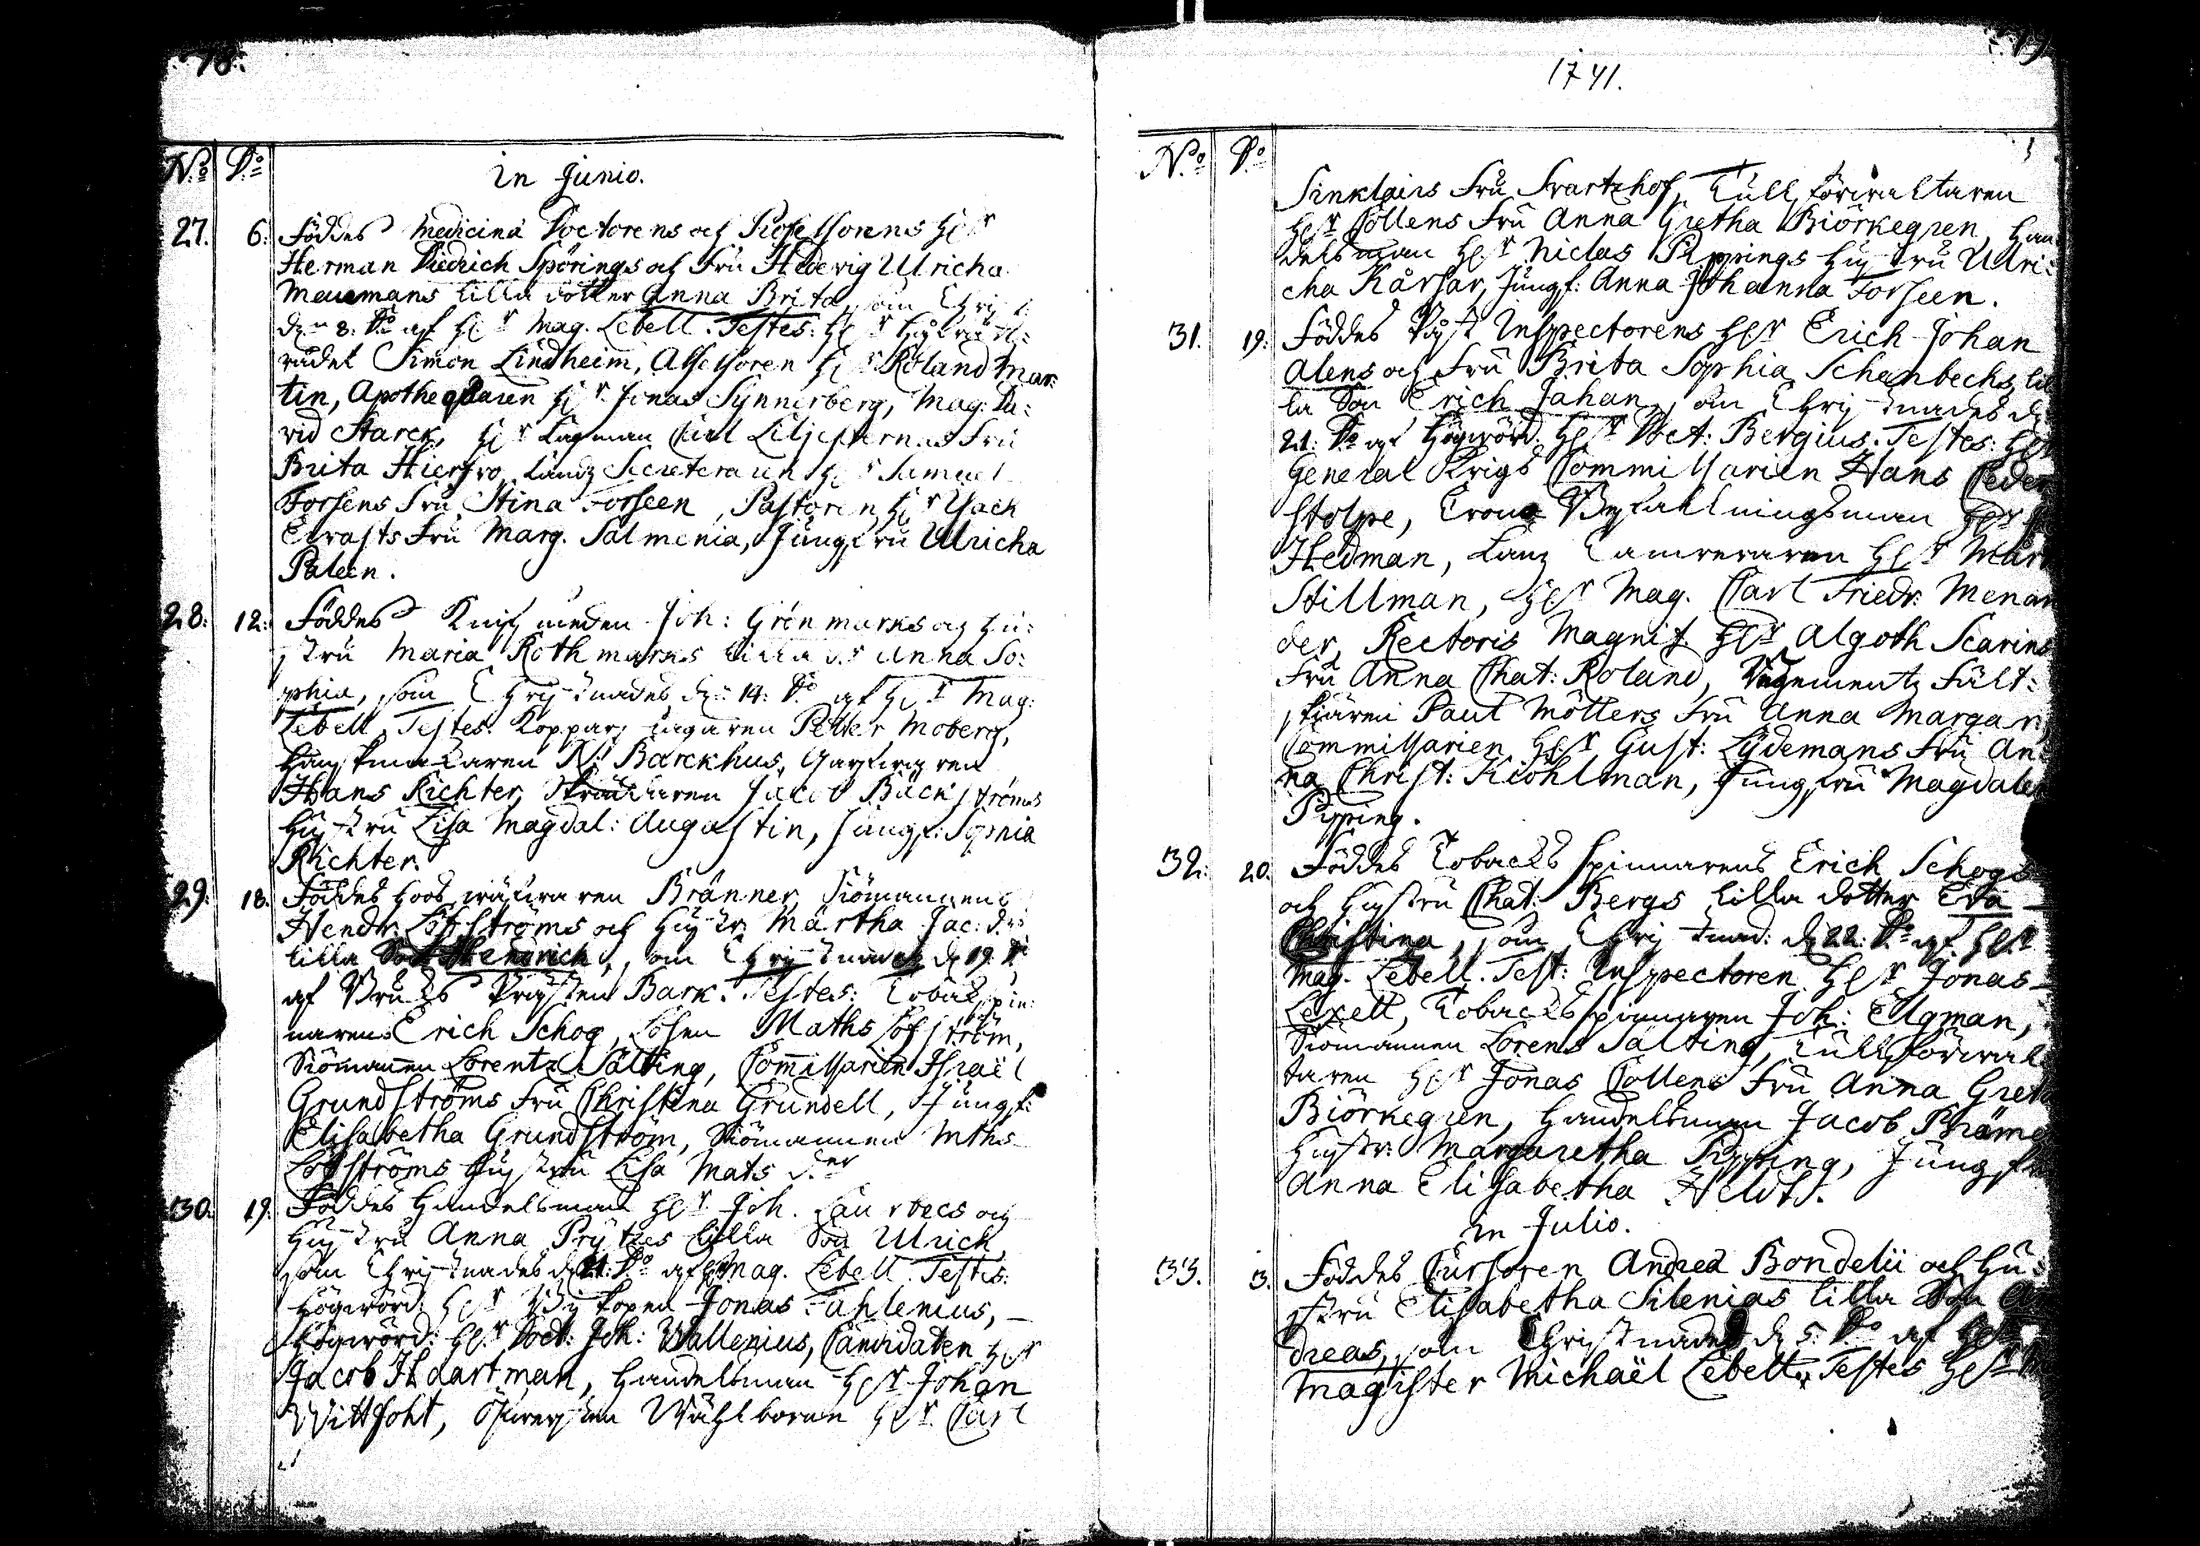 78.
N:o D:o
in Junio.
27. 6. Föddes Medicinæ Doctorens och Professorens H:r
Herman Diedrich Spörings och Fru Hedevig Ulricha
Meurmans lilla dotter Anna Brita, som Christ:
d: 8: D:o af H:r Mag. Lebell. Testes: H:r
rådet Simon Lindheim, Assessoren H:r Roland Mar-
tin, Apothequaren H:r Jonas Synnerberg, Mag: Da-
vid Starck, H:r Lagman Carl Liljestiernas Fru
Brita Hiertro, Landz Secreteraren H:r Samuel
Forsens Fru Stina Forseen, Pastoren H:r
Fru Marg. Salmenia, Jungfru Ulricha
Paleen.
28. 12. Föddes Knifsmeden Joh: Grönmarks och Hu-
stru Maria Rothmarks lilla d:r Anna So-
phia, som Christnades d: 14: D:o af H:r Mag:
Lebell. Testes: Kopparslagaren Petter Moberg,
Handskmakaren N: Barckhus, Garfwaren
Hans Richter, Skräddaren Jacob Bäckströms
Hustru Lisa Magdal: Augustin, Jungf: Sophia
Richter.
29. 18. Föddes hoos Bränner, Siömannens
Hendr: Löfströms och Hustr: Märtha Jac: d:r
lilla Son Hendrich, som Christnades d 19. D:o
af Prästen Bark. Testes: Tobakspin-
naren Erich Schog, Maths Löfström,
Siömannen Lorentz Salting, Commissarien Israël
Grundströms Fru Christina Grundell, Jungf:
Elisabetha Grundström, Siömannen Mths
Löfströms Hustru Lisa Mats d:er
30. 19. Föddes Handelsman H:r Joh. Laurbecs och
Hustru Anna Prytzes lilla Son Ulrich,
som Christnades d 21. D:o af H:r Mag. Lebell. Testes:
Högwörd: H:r Biskopen Jonas Fahlenius,
Högwörd: H:r Doct: Joh: Wallenius, Candidaten H:r
Jacob Haartman, Handelsman H:r Johan
Wittfoht, Öfwersten Wählboren H:r Carl
1741.
N:o D:o
Sinklairs Fru Svartzhof, Tullförwaltaren
H:r Collens Fru Anna Gretha Biörkegren, Han-
delsman H:r Niclas Pippings Hustru Ulri-
cha Kårsar, Jungf: Anna Johanna Forseen.
31. 19. Föddes Post Inspectorens H:r Erich Johan
Alens och Fru Brita Sophia Schenbechs lil-
la Son Erich Johan, som Christnades d:
21: D:o af Högwörd. H:r Doct: Bergius. Testes: H:r
General Krigs Commissarien Hans Ceder
Stolpe, Crono Befallningsman H:r
Hedman, Lanz Camereraren H:r
Stillman, H:r Mag. Carl Friedr: Menan
der, Rectoris Magnif. H:r Algoth Scarins
Fru Anna Chat: Roland, Regements Fält-
skiären Paul Möllers Fru Anna Margar:
Commissarien H:r Gust: Lydemans Fru An-
na Christ: Kiöhlman, Jungfru Magdalen
Pipping.
32. 20. Föddes Tobacks Spinnarens Erich Schogs
och Hustru Chat: Bergs lilla dotter Eva
Christina, som Christnad: d 22: D:o af H:r
Mag. Lebell. Test: Inspectoren H:r Jonas
Lexell, Tobacks Spinnaren Joh: Elgman,
Siömannen Lorens Salting, Tullförwal-
taren H:r Jonas Collens Fru Anna Greta
Biörkegren, Handelsman Jacob Bräme
Hustr: Margaretha Pipping, Jungfru
Anna Elisabetha Heldt.
in Julio.
33. 3. Föddes Cursoren Andreæ Bondelii och Hu-
stru Elisabetha Silenias lilla Son An
dreas, som Christnades d 5: D:o af H:r
Magister Michaël Lebell. Testes H:r